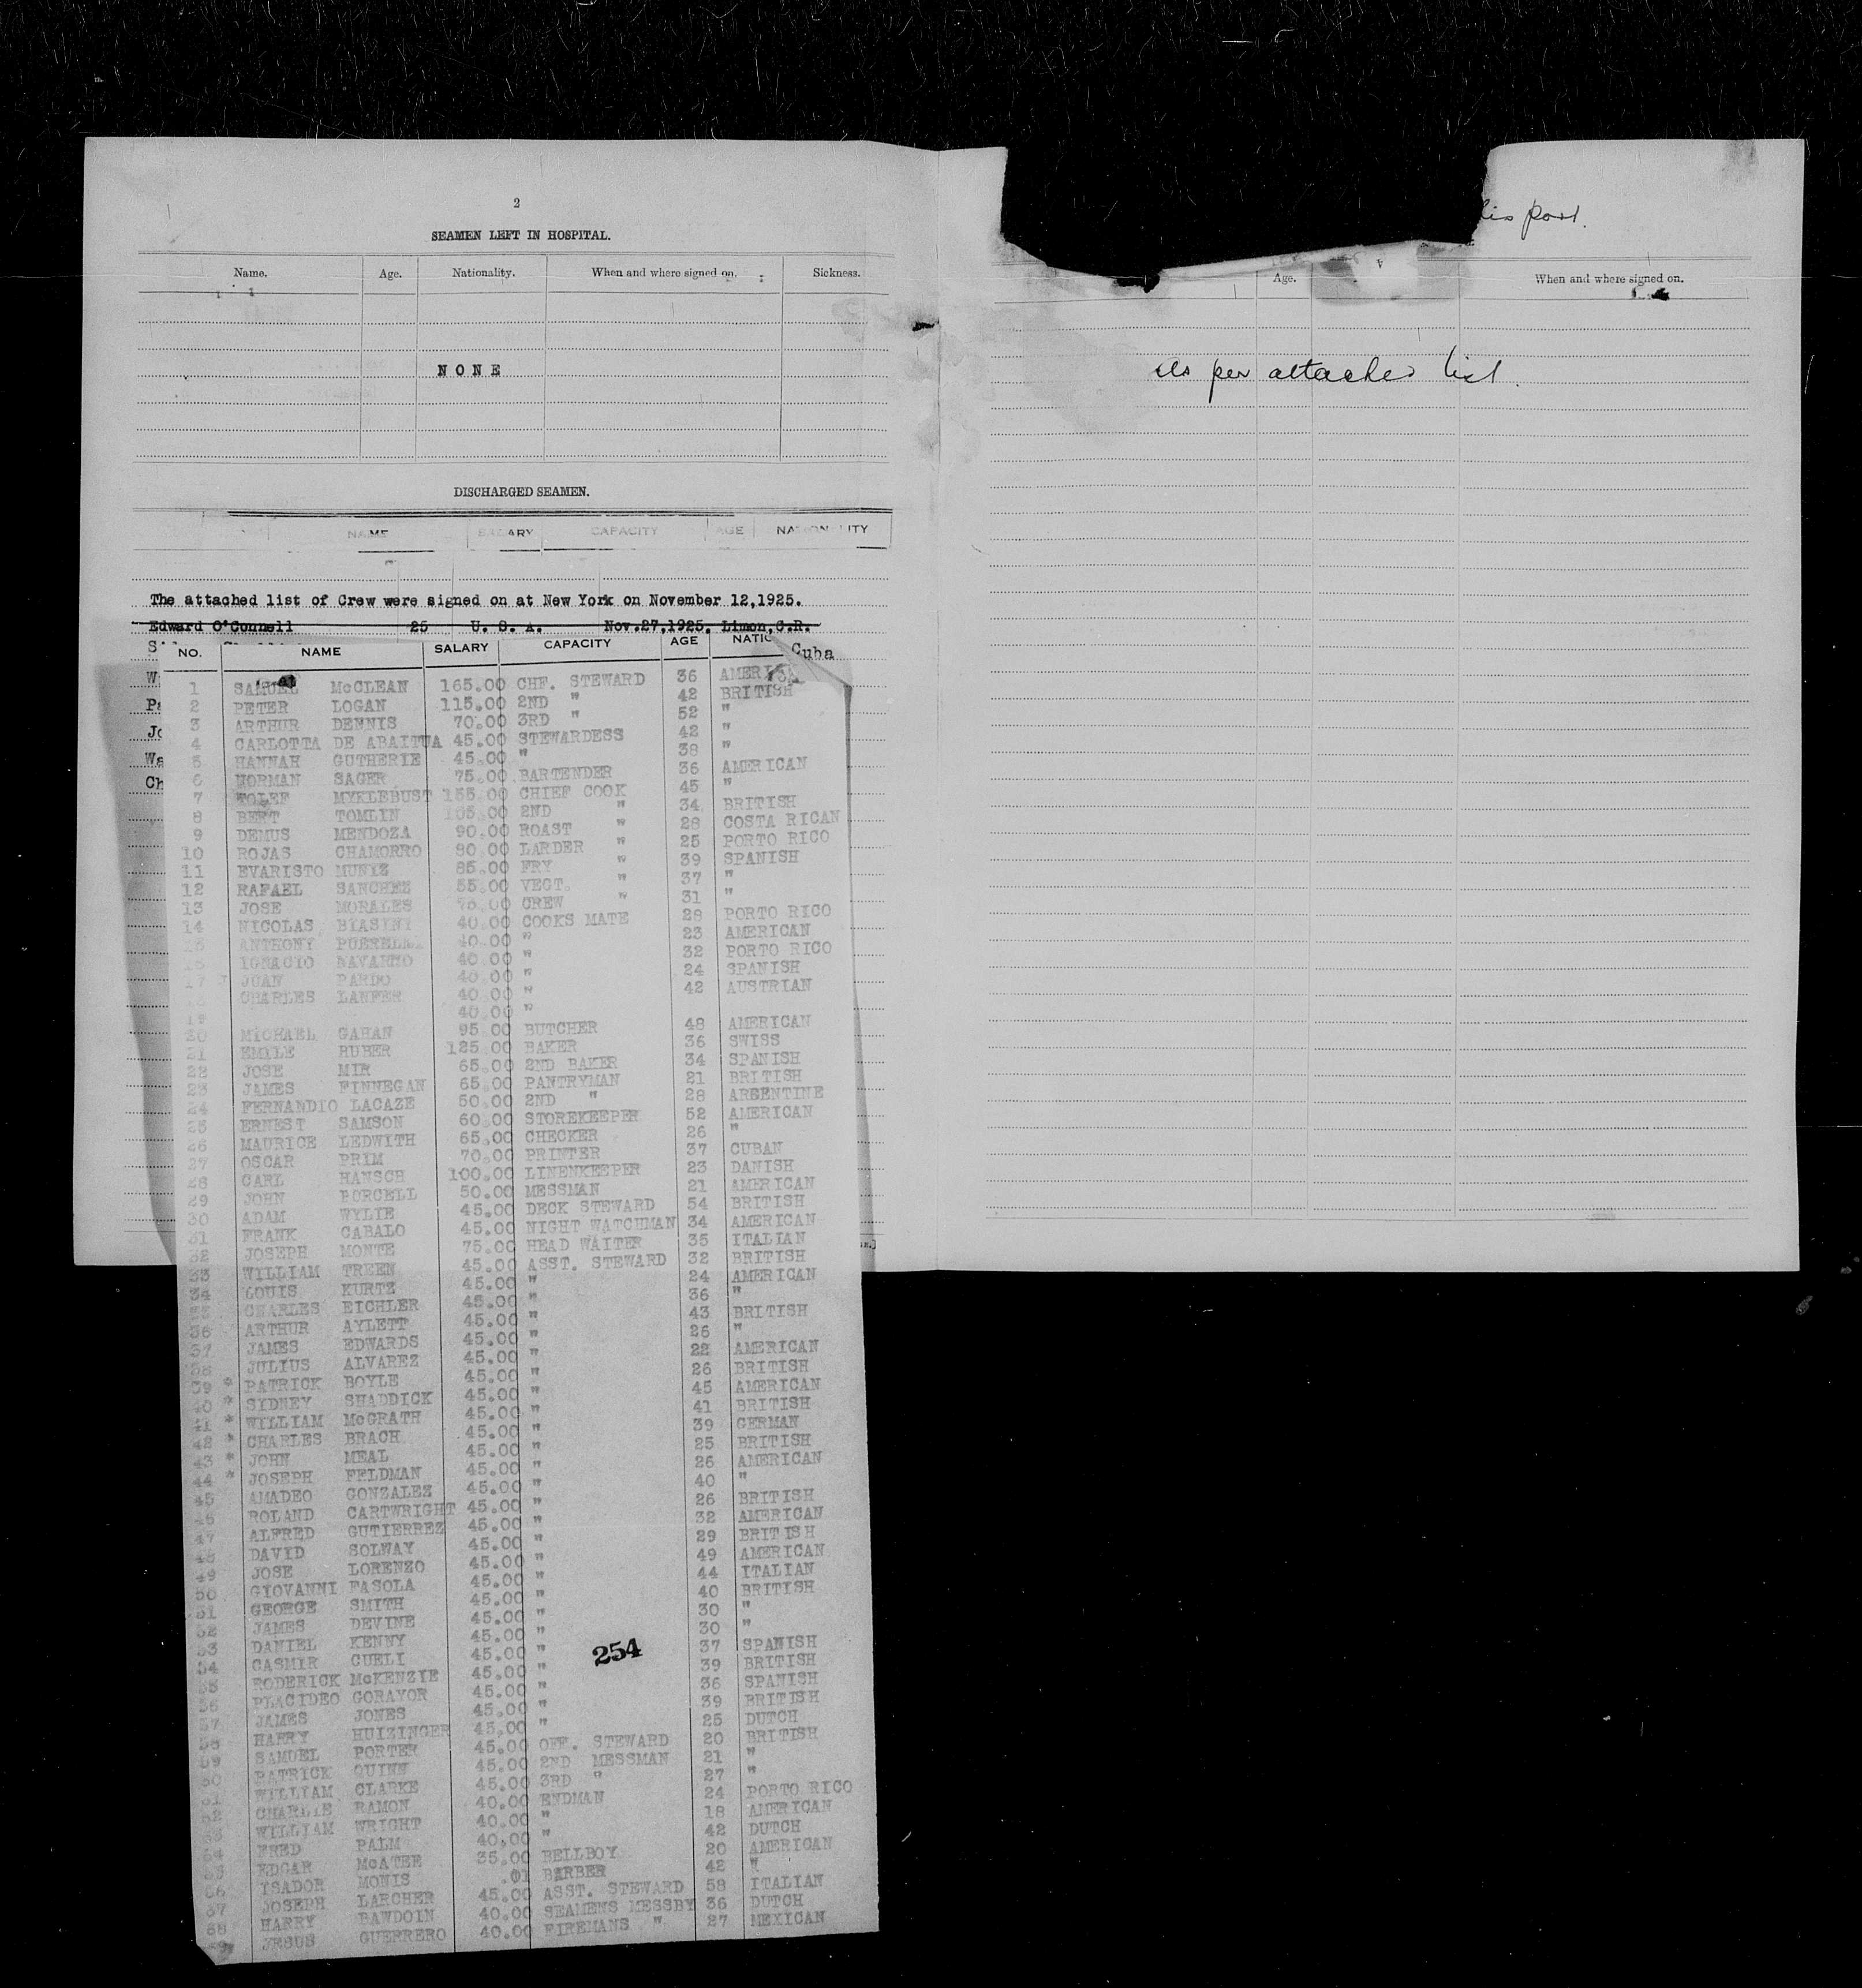 2
SEAMEN LEFT IN HOSPITAL.
Name. Age. Nationality. When and where signed on. Sickness.
NONE
DISCHARGED SEAMEN.
NAME SALARY CAPACITY AGE NATIONALITY
The attached list of Crew were signed on at New York on November 12,1925.
Edward O'Connell 25 U. S. A. Nov.27,1925, Limon,C.R.
Cuba
W
Pa
Jo
Wa
Ch
NO. NAME SALARY CAPACITY AGE NATIO
1 SAMUEL McCLEAN 165.00 CHF. STEWARD 36 AMERI
2 PETER LOGAN 115.00 2ND " 42 BRITISH
3 ARTHUR DENNIS 70.00 3RD " 52 "
4 CARLOTTA DE ABAITUA 45.00 STEWARDESS 42 "
5 HANNAH GUTHERIE 45.00 " 38 "
6 NORMAN SAGER 75.00 BARTENDER 36 AMERICAN
7 TOLEF MYKLEBUST 155.00 CHIEF COOK 45 "
8 BERT TOMLIN 105.00 2ND " 34 BRITISH
9 DEMUS MENDOZA 90.00 ROAST " 28 COSTA RICAN
10 ROJAS CHAMORRO 80.00 LARDER " 25 PORTO RICO
11 EVARISTO MUNIZ 85.00 FRY " 39 SPANISH
12 RAFAEL SANCHEZ 55.00 VEGT. " 37 "
13 JOSE MORALES 75.00 CREW " 31 "
14 NICOLAS 40.00 COOKS MATE 28 PORTO RICO
15 ANTHONY 40.00 " 23 AMERICAN
16 IGNACIO NAVARRO 40.00 " 32 PORTO RICO
17 JUAN PARDO 40.00 " 24 SPANISH
CHARLES LANFER 40.00 " 42 AUSTRIAN
19 40.00 "
20 MICHAEL GAHAN 95.00 BUTCHER 48 AMERICAN
21 EMILE HUBER 125.00 BAKER 36 SWISS
22 JOSE MIR 65.00 2ND BAKER 34 SPANISH
23 JAMES FINNEGAN 65.00 PANTRYMAN 21 BRITISH
24 FERNANDIO LACAZE 50.00 2ND " 28 ARGENTINE
25 ERNEST SAMSON 60.00 STOREKEEPER 52 AMERICAN
26 MAURICE LEDWITH 65.00 CHECKER 26 "
27 OSCAR PRIM 70.00 PRINTER 37 CUBAN
28 CARL HANSCH 100.00 LINENKEEPER 23 DANISH
29 JOHN PURCELL 50.00 MESSMAN 21 AMERICAN
30 ADAM WYLIE 45.00 DECK STEWARD 54 BRITISH
31 FRANK CABALO 45.00 NIGHT WATCHMAN 34 AMERICAN
32 JOSEPH MONTE 75.00 HEAD WAITER 35 ITALIAN
33 WILLIAM TREEN 45.00 ASST. STEWARD 32 BRITISH
34 LOUIS KURTZ 45.00 " 24 AMERICAN
35 CHARLES EICHLER 45.00 " 36 "
36 ARTHUR AYLETT 45.00 " 43 BRITISH
37 JAMES EDWARDS 45.00 " 26 "
38 JULIUS ALVAREZ 45.00 " 22 AMERICAN
39 * PATRICK BOYLE 45.00 " 26 BRITISH
40 * SYDNEY SHADDICK 45.00 " 45 AMERICAN
41 * WILLIAM McGRATH 45.00 " 41 BRITISH
42 * CHARLES BRACH 45.00 " 39 GERMAN
43 * JOHN MEAL 45.00 " 25 BRITISH
44 * JOSEPH FELDMAN 45.00 " 26 AMERICAN
45 AMADEO GONZALEZ 45.00 " 40 "
46 ROLAND CARTWRIGHT 45.00 " 26 BRITISH
47 ALFRED GUTIERREZ 45.00 " 32 AMERICAN
48 DAVID SOLWAY 45.00 " 29 BRITISH
49 JOSE LORENZO 45.00 " 49 AMERICAN
50 GIOVANNI FASOLA 45.00 " 44 ITALIAN
51 GEORGE SMITH 45.00 " 40 BRITISH
52 JAMES DEVINE 45.00 " 30 "
53 DANIEL KENNY 45.00 " 30 "
54 CASMIR CUELI 45.00 " 37 SPANISH
55 RODERICK McKENZIE 45.00 " 39 BRITISH
56 PLACIDEO GORAYOR 45.00 " 36 SPANISH
57 JAMES JONES 45.00 " 39 BRITISH
58 HARRY HUIZINGER 45.00 " 25 DUTCH
59 SAMUEL PORTER 45.00 OFF. STEWARD 20 BRITISH
60 PATRICK QUINN 45.00 2ND MESSMAN 21 "
61 WILLIAM CLARKE 45.00 3RD " 27 "
62 CHARLIE RAMON 40.00 ENDMAN 24 PORTO RICO
63 WILLIAM WRIGHT 40.00 " 18 AMERICAN
64 FRED PALM 40.00 " 42 DUTCH
65 EDGAR McATEE 35.00 BELLBOY 20 AMERICAN
66 ISADOR MONIS .01 BARBER 42 "
67 JOSEPH LARCHER 45.00 ASST. STEWARD 58 ITALIAN
68 HARRY BAWDOIN 40.00 SEAMENS MESSBY 36 DUTCH
JESUS GUERRERO 40.00 FIREMANS " 27 MEXICAN
254
his port.
Age. When and where signed on.
As per attached list.